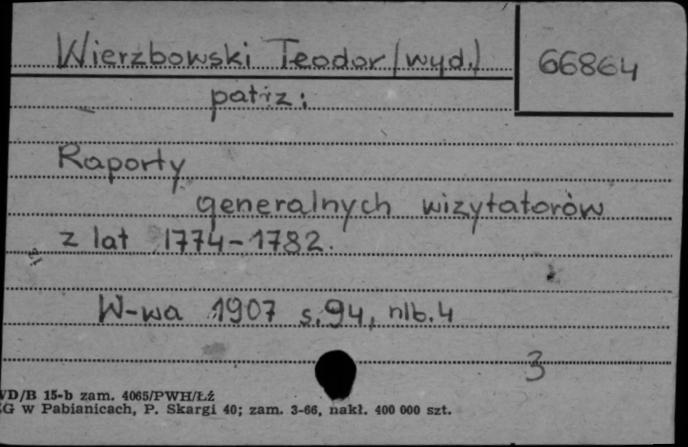 Wierzbowski Teodor (wyd.)
66864
patrz:
Raporty
generalnych wizytatorów
z lat 1774-1782.
W-wa 1907 s. 94, nlb. 4
3
VD/B 15-b zam. 4065/PWH/Łź
G w Pabianicach, P. Skargi 40; zam. 3-66, nakł. 400 000 szt.